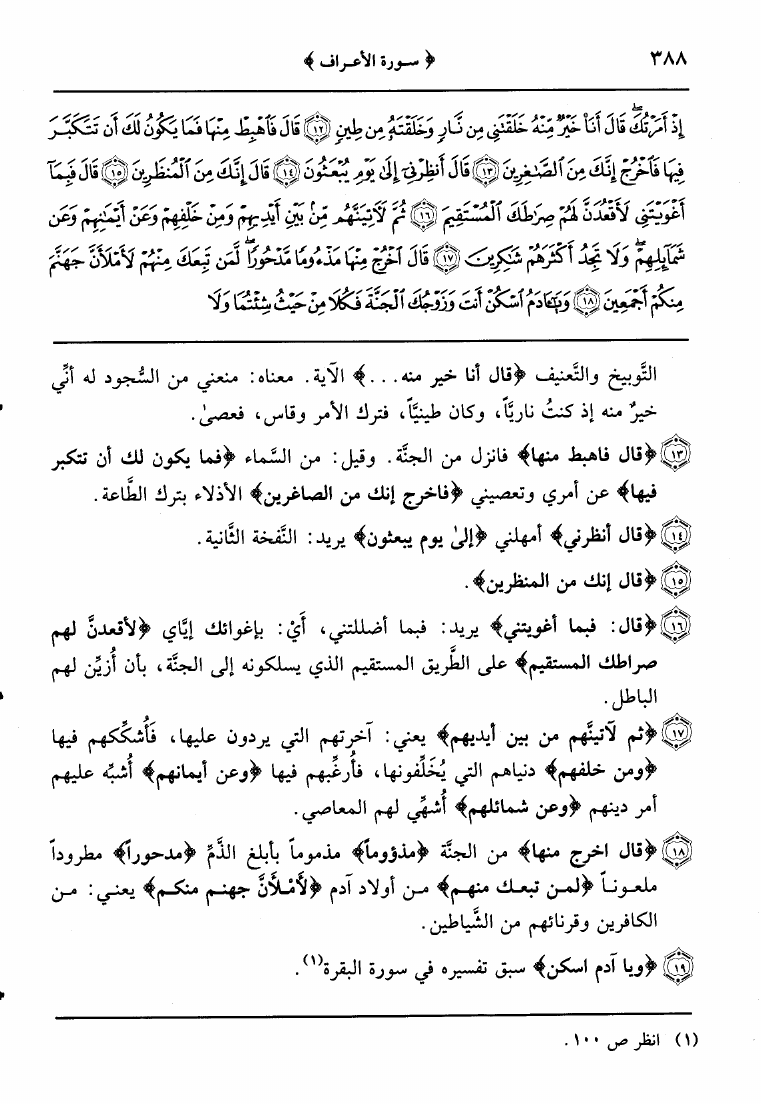 ٣٨٨ ﴿ سورة الأعراف ﴾
إِذْ أَمَرْتُكَ ۖ قَالَ أَنَا۠ خَيْرٌ مِّنْهُ خَلَقْتَنِى مِن نَّارٍ وَخَلَقْتَهُۥ مِن طِينٍ ﴿١٢﴾ قَالَ فَٱهْبِطْ مِنْهَا فَمَا يَكُونُ لَكَ أَن تَتَكَبَّرَ
فِيهَا فَٱخْرُجْ إِنَّكَ مِنَ ٱلصَّٰغِرِينَ ﴿١٣﴾ قَالَ أَنظِرْنِىٓ إِلَىٰ يَوْمِ يُبْعَثُونَ ﴿١٤﴾ قَالَ إِنَّكَ مِنَ ٱلْمُنظَرِينَ ﴿١٥﴾ قَالَ فَبِمَآ
أَغْوَيْتَنِى لَأَقْعُدَنَّ لَهُمْ صِرَٰطَكَ ٱلْمُسْتَقِيمَ ﴿١٦﴾ ثُمَّ لَءَاتِيَنَّهُم مِّنۢ بَيْنِ أَيْدِيهِمْ وَمِنْ خَلْفِهِمْ وَعَنْ أَيْمَٰنِهِمْ وَعَن
شَمَآئِلِهِمْ ۖ وَلَا تَجِدُ أَكْثَرَهُمْ شَٰكِرِينَ ﴿١٧﴾ قَالَ ٱخْرُجْ مِنْهَا مَذْءُومًا مَّدْحُورًا ۖ لَّمَن تَبِعَكَ مِنْهُمْ لَأَمْلَأَنَّ جَهَنَّمَ
مِنكُمْ أَجْمَعِينَ ﴿١٨﴾ وَيَٰٓـَٔادَمُ ٱسْكُنْ أَنتَ وَزَوْجُكَ ٱلْجَنَّةَ فَكُلَا مِنْ حَيْثُ شِئْتُمَا وَلَا
التَّوبيخ والتَّعنيف ﴿قال أنا خير منه . . .﴾ الآية. معناه: منعني من السُّجود له أنِّي
خيرٌ منه إذ كنتُ ناريَّاً، وكان طينيَّاً، فترك الأمر وقاس، فعصىٰ.
﴿١٣﴾ ﴿قال فاهبط منها﴾ فانزل من الجنَّة. وقيل: من السَّماء ﴿فما يكون لك أن تتكبر
فيها﴾ عن أمري وتعصيني ﴿فاخرج إنك من الصاغرين﴾ الأذلاء بترك الطَّاعة.
﴿١٤﴾ ﴿قال أنظرني﴾ أمهلني ﴿إلىٰ يوم يبعثون﴾ يريد: النَّفخة الثَّانية.
﴿١٥﴾ ﴿قال إنك من المنظرين﴾.
﴿١٦﴾ ﴿قال: فبما أغويتني﴾ يريد: فبما أضللتني، أَيْ: بإغوائك إيَّاي ﴿لأقعدنَّ لهم
صراطك المستقيم﴾ على الطَّريق المستقيم الذي يسلكونه إلى الجنَّة، بأن أُزيِّن لهم
الباطل.
﴿١٧﴾ ﴿ثم لآتينَّهم من بين أيديهم﴾ يعني: آخرتهم التي يردون عليها، فَأُشكِّكهم فيها
﴿ومن خلفهم﴾ دنياهم التي يُخَلِّفونها، فأُرغِّبهم فيها ﴿وعن أيمانهم﴾ أُشبِّه عليهم
أمر دينهم ﴿وعن شمائلهم﴾ أُشهِّي لهم المعاصي.
﴿١٨﴾ ﴿قال اخرج منها﴾ من الجنَّة ﴿مذؤوماً﴾ مذموماً بأبلغ الذَّمِّ ﴿مدحوراً﴾ مطروداً
ملعوناً ﴿لمن تبعك منهم﴾ من أولاد آدم ﴿لأَمْلأَنَّ جهنم منكم﴾ يعني: من
الكافرين وقرنائهم من الشَّياطين.
﴿١٩﴾ ﴿ويا آدم اسكن﴾ سبق تفسيره في سورة البقرة(١).
(١) انظر ص ١٠٠.